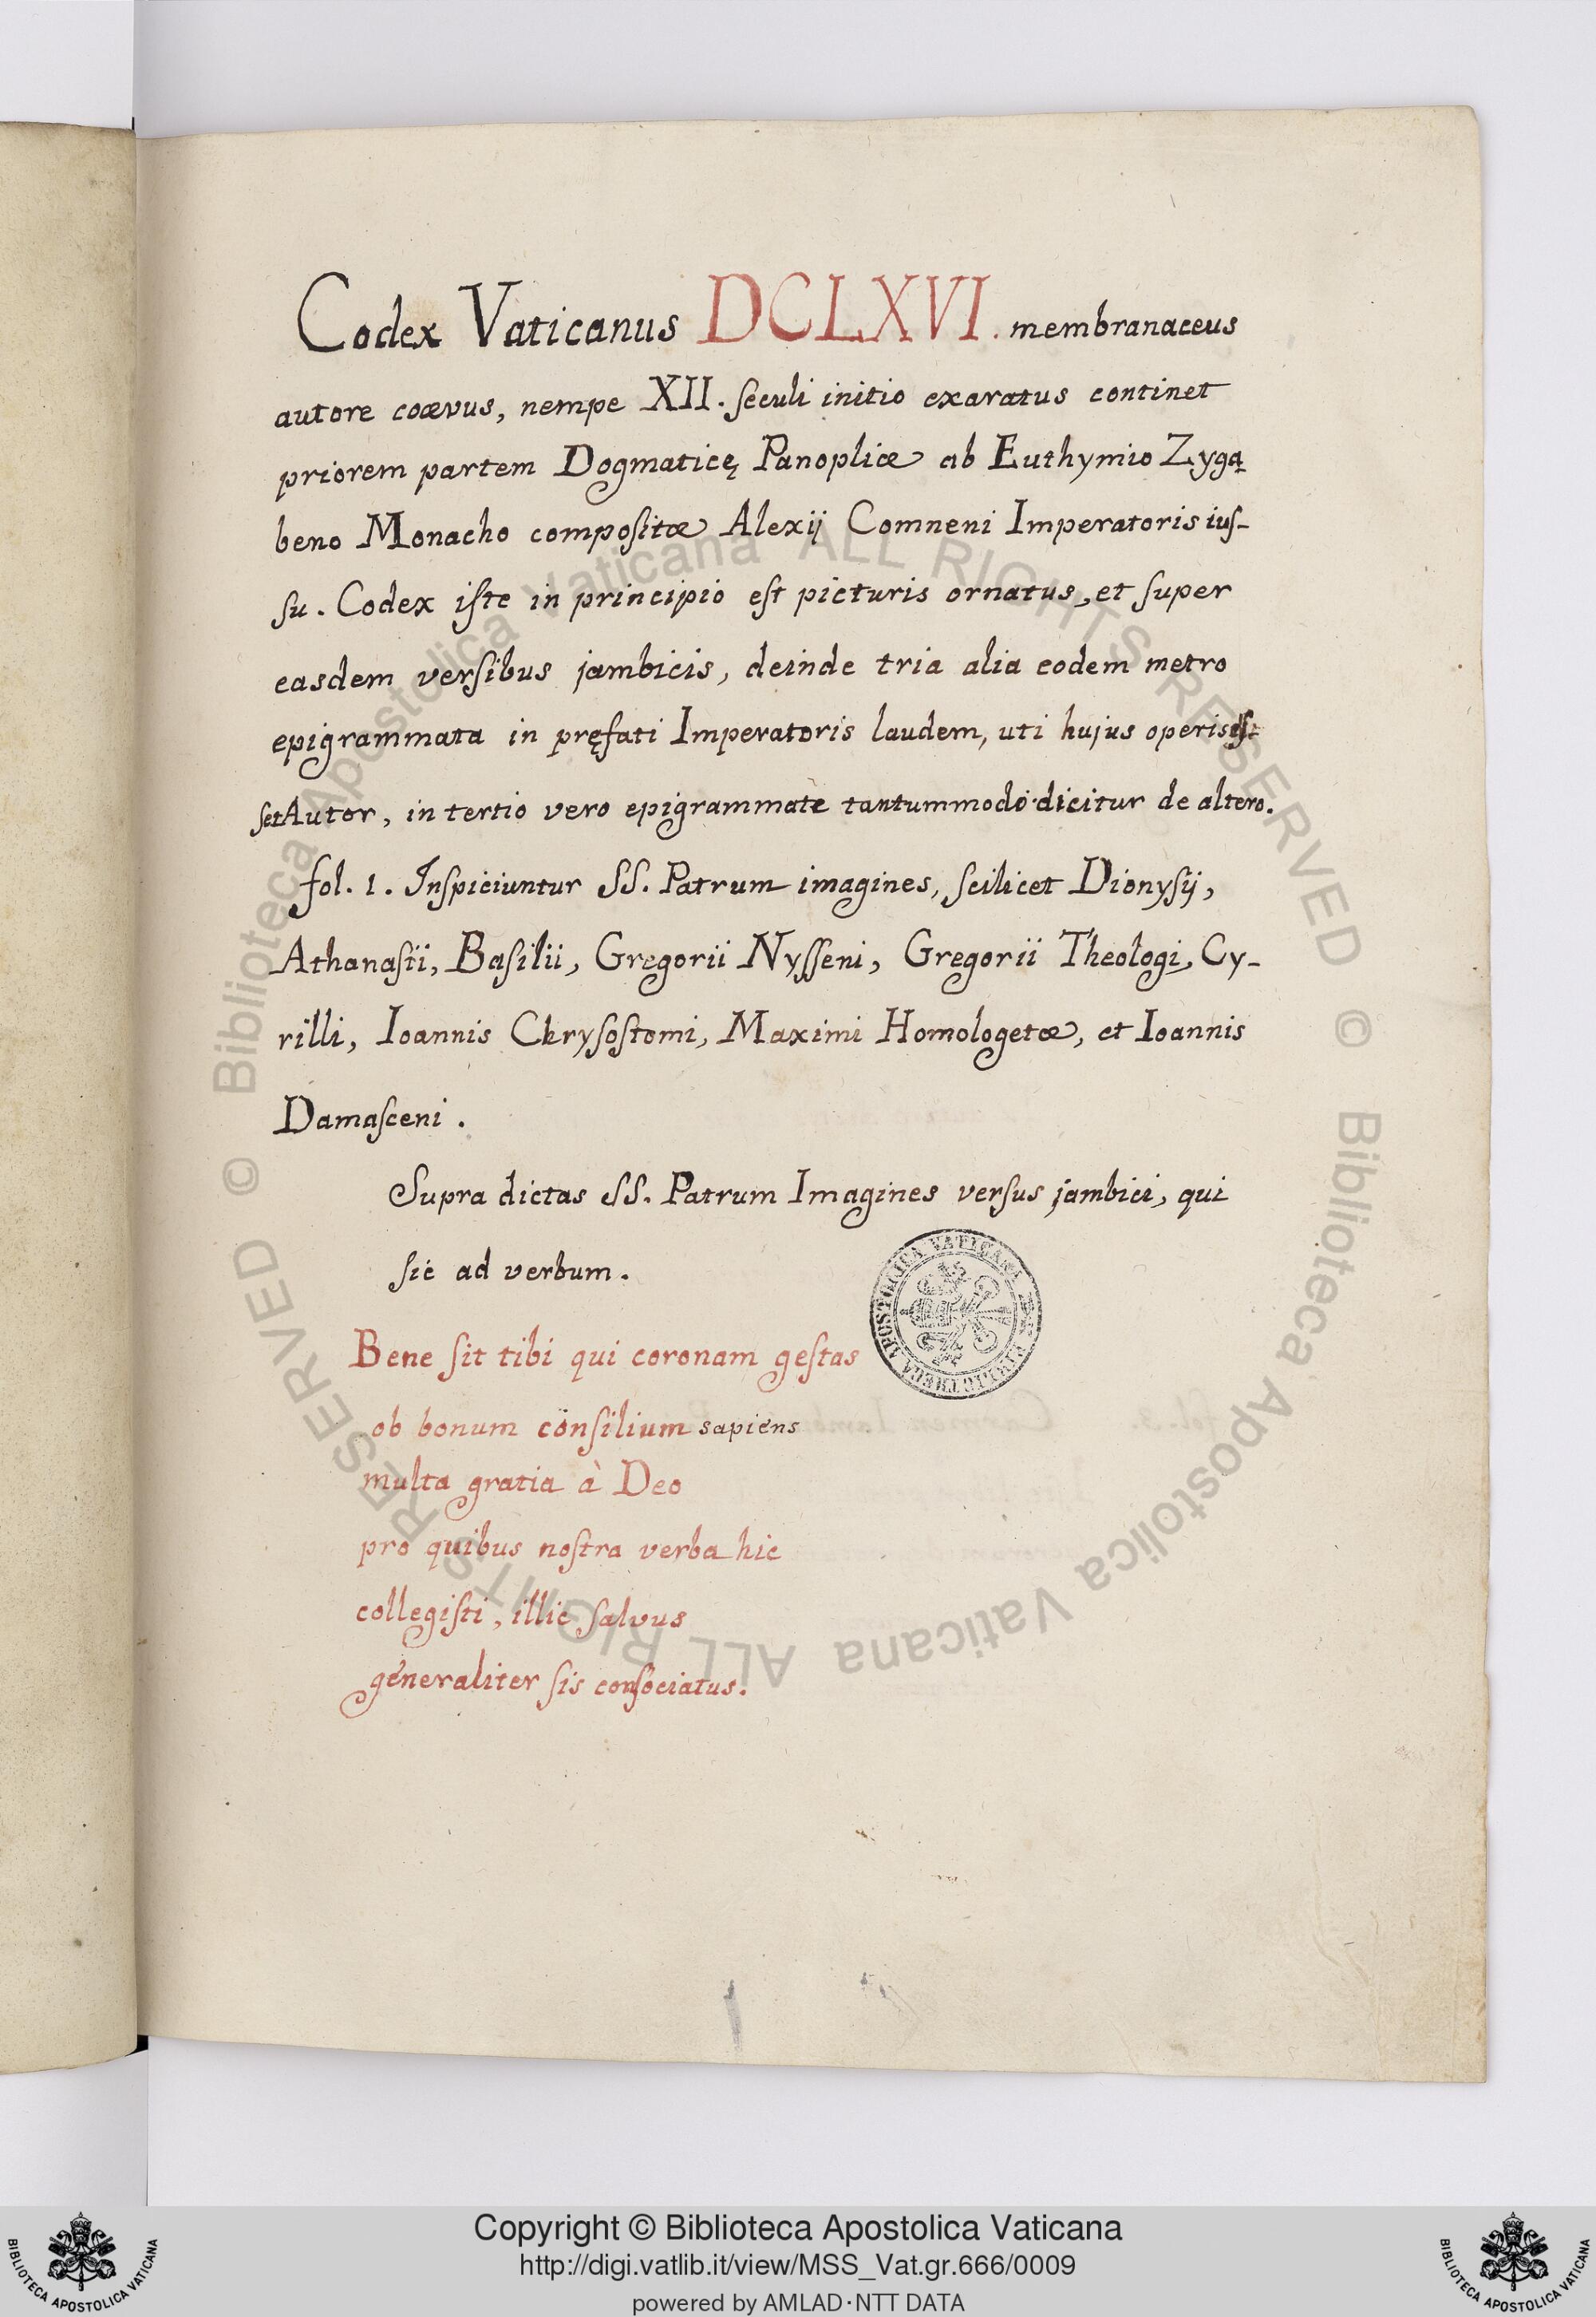 Codex Vaticanus DCLXVI. membranaceus
autore coævus, nempe XII. seculi initio exaratus continet
priorem partem Dogmaticę Panopliæ ab Euthymio Zyga
beno Monacho compositæ Alexij Comneni Imperatoris ius-
su. Codex iste in principio est picturis ornatus, et super
easdem versibus jambicis, deinde tria alia eodem metro
epigrammata in pręfati Imperatoris laudem, uti hujus operis
Autor, in tertio vero epigrammate tantummodo dicitur de altero.
fol. 1. Inspiciuntur SS. Patrum imagines, scilicet Dionysij,
Athanasii, Basilii, Gregorii Nysseni, Gregorii Theologi, Cy-
rilli, Ioannis Chrysostomi, Maximi Homologetæ, et Ioannis
Damasceni.
Supra dictas SS. Patrum Imagines versus jambici, qui
sic ad verbum.
Bene sit tibi qui coronam gestas
ob bonum consilium sapiens
multa gratia à Deo
pro quibus nostra verba hic
collegisti, illic salvus
generaliter sis consociatus.
BIBLIOTHECA APOSTOLICA VATICANA
© Biblioteca Apostolica Vaticana ALL RIGHTS RESERVED © Biblioteca Apostolica Vaticana ALL RIGHTS RESERVED
Copyright © Biblioteca Apostolica Vaticana
http://digi.vatlib.it/view/MSS_Vat.gr.666/0009
powered by AMLAD·NTT DATA
BIBLIOTECA APOSTOLICA VATICANA
BIBLIOTECA APOSTOLICA VATICANA